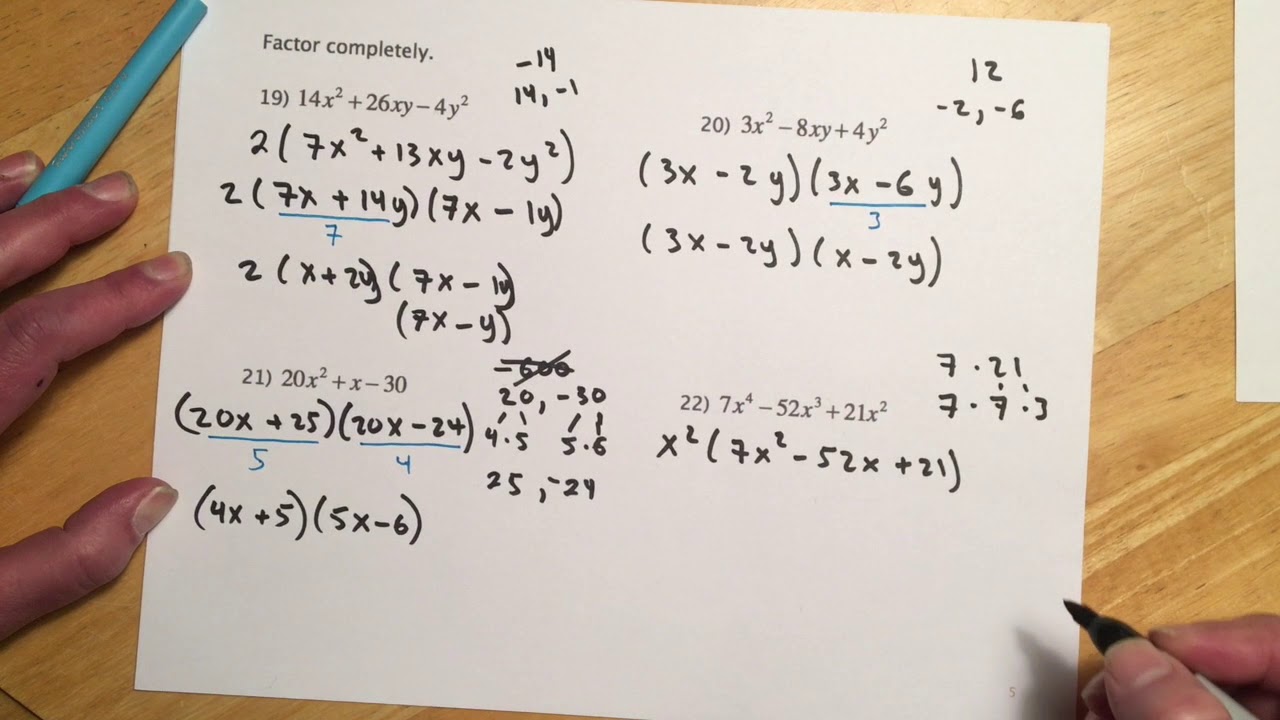 Factor completely.
19) 14x² + 26xy − 4y²
−14
14, −1
2(7x² + 13xy − 2y²)
2(7x + 14y)(7x − 1y)
7
2(x + 2y)(7x − 1y)
(7x − y)
20) 3x² − 8xy + 4y²
12
−2, −6
(3x − 2y)(3x − 6y)
3
(3x − 2y)(x − 2y)
21) 20x² + x − 30
−600
20, −30
4·5 5·6
25, −24
(20x + 25)(20x − 24)
5 4
(4x + 5)(5x − 6)
22) 7x⁴ − 52x³ + 21x²
7 · 21
7 · 7 · 3
x²(7x² − 52x + 21)
5